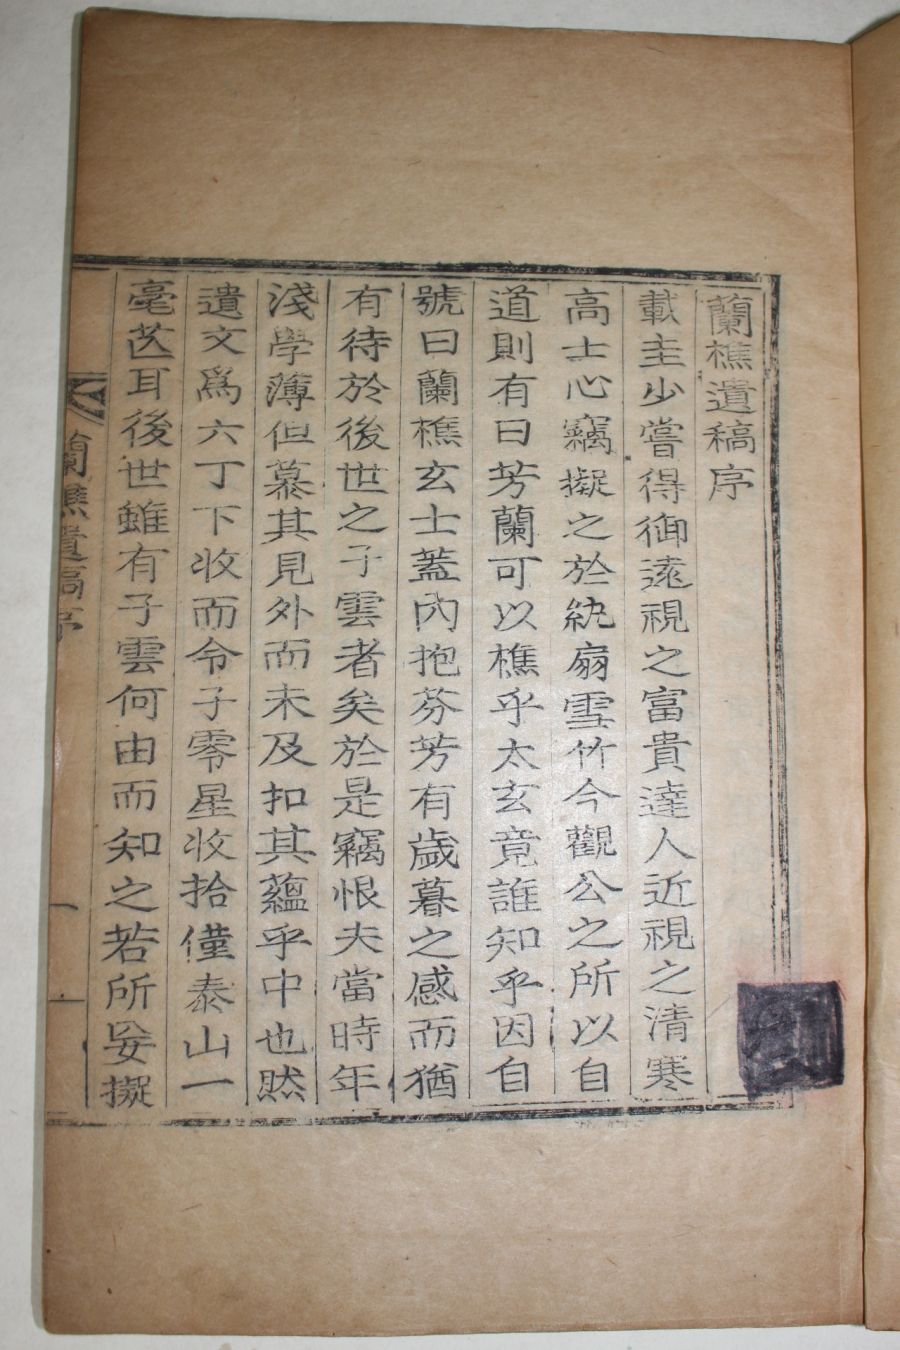 蘭樵遺稿序
載圭少嘗得御遠視之富貴達人近視之清寒
高士心竊擬之於紈扇雪竹今觀公之所以自
道則有曰芳蘭可以樵乎太玄竟誰知乎因自
號曰蘭樵玄士蓋內抱芬芳有歲暮之感而猶
有待於後世之子雲者矣於是竊恨夫當時年
淺學薄但慕其見外而未及扣其蘊乎中也然
遺文爲六丁下收而令子零星收拾僅泰山一
毫芒耳後世雖有子雲何由而知之若所妄擬
蘭樵遺稿序
一